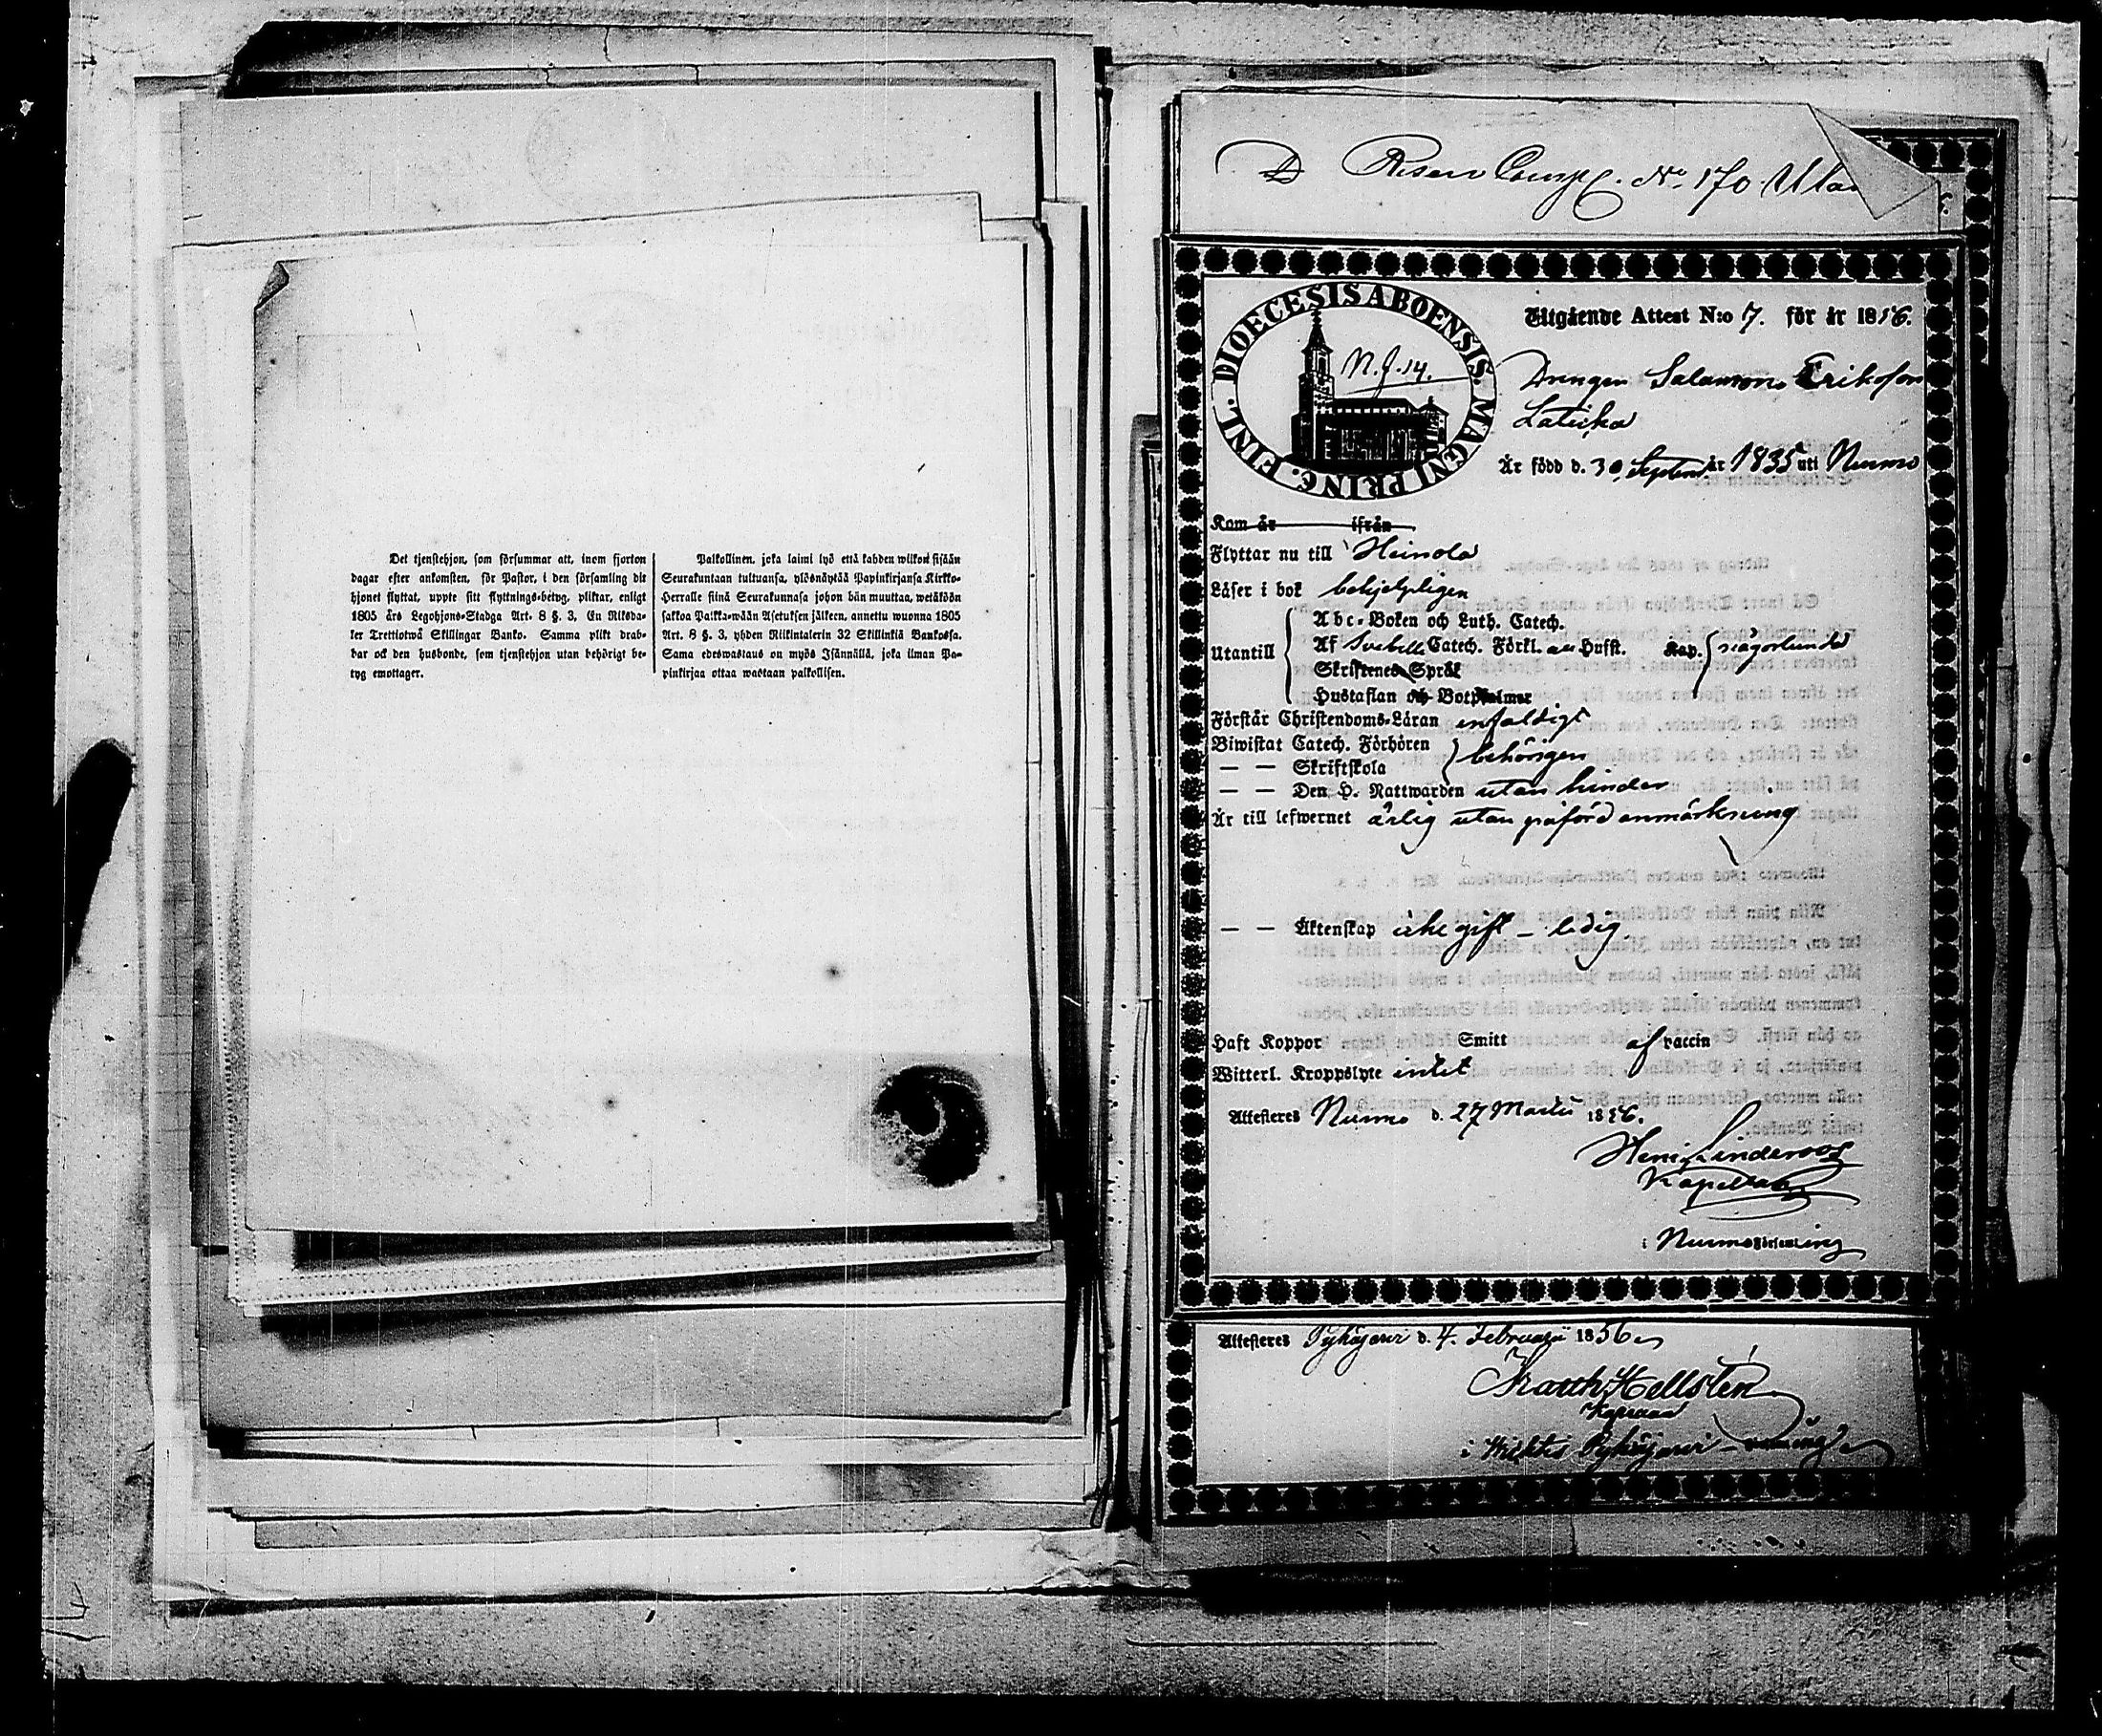 Det tjenstehjon, som försummar att, inom fjorton
dagar efter ankomsten, för Pastor, i den församling dit
hjonet flyttat, uppte sitt flyttnings-betyg, pliktar, enligt
1805 års Legohjons-Stadga Art. 8 §. 3, En Riksda-
ler Trettiotwå Skillingar Banko. Samma plikt drab-
bar ock den husbonde, som tjenstehjon utan behörigt be-
tyg emottager.
Palkollinen, joka laimi lyö että kahden wiikon sisään
Seurakuntaan tultuansa, ylösnäytää Papinkirjansa Kirkko-
Herralle siinä Seurakunnasa johon hän muuttaa, wetäköön
sakkoa Palkka-wään Asetuksen jälkeen, annettu wuonna 1805
Art. 8 §. 3, yhden Riikintalerin 32 Skillinkiä Bankossa.
Sama edeswastaus on myös Isännällä, joka ilman Pa-
pinkirjaa ottaa wastaan palkollisen.
D Reserv Comp. No 170
DIOECESIS ABOENSIS. MAGNI PRINC. FINL.
N. J. 14.
Utgående Attest N:o 7. för år 1856.
Drengen Salamon Eriksson
Är född d. 30 Septemb år 1835 uti Nurmo
Kom år ifrån
Flyttar nu till Heinola
Läser i bok behjelpligen
Utantill
Abc-Boken och Luth. Catech.
Af Svebelii Catech. Förkl. Hufst. Kap. någorlunda
Skriftenes Språk
Hustaflan och Botpsalmer
Förstår Christendoms-Läran enfaldigt
Biwistat Catech. Förhören behörigen
— — Skriftskola
— — Den H. Nattwarden utan hinder
Är till lefwernet ärlig utan påförd anmärkning
— — Äktenskap icke gift – ledig
Haft Koppor Smitt af vaccin
Witterl. Kroppslyte intet
Attesteres Nurmo d. 27 Martii 1856.
Linderoos
Kapellan
i Nurmo Församling
Attesteres Pyhäjerwi d. 4. Februarii 1856
Hellsten
i Wichtis Pyhäjerwi